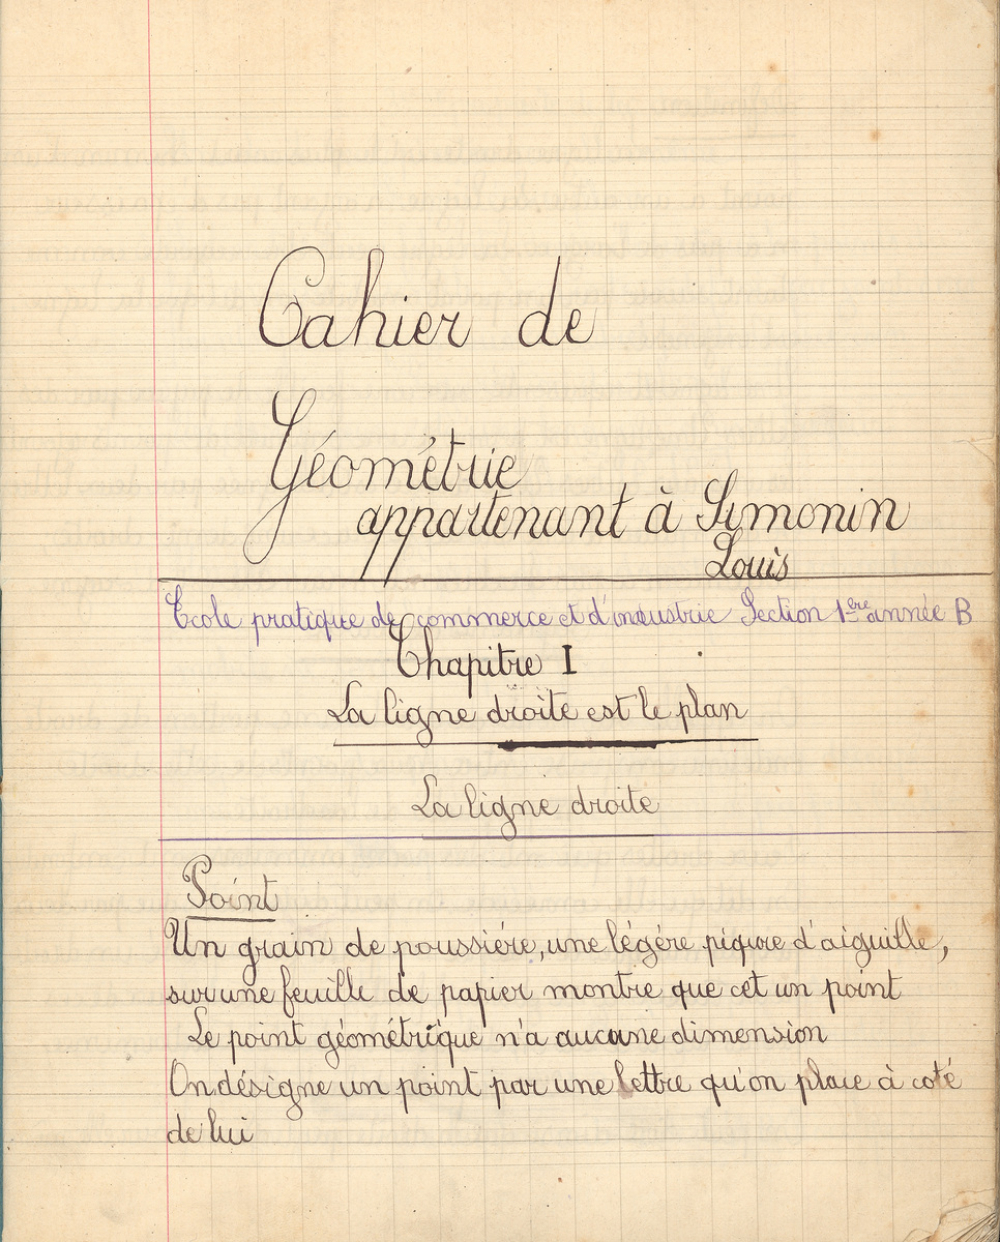 Cahier de
Géométrie
appartenant à Simonin
Louis
Ecole pratique de commerce et d'industrie Section 1ère année B
Chapitre I
La ligne droite est le plan
La ligne droite
Point
Un grain de poussiére, une légére piqure d'aiguille,
sur une feuille de papier montre que cet un point
Le point géométrique n'a aucune dimension
On désigne un point par une lettre qu'on place à coté
de lui